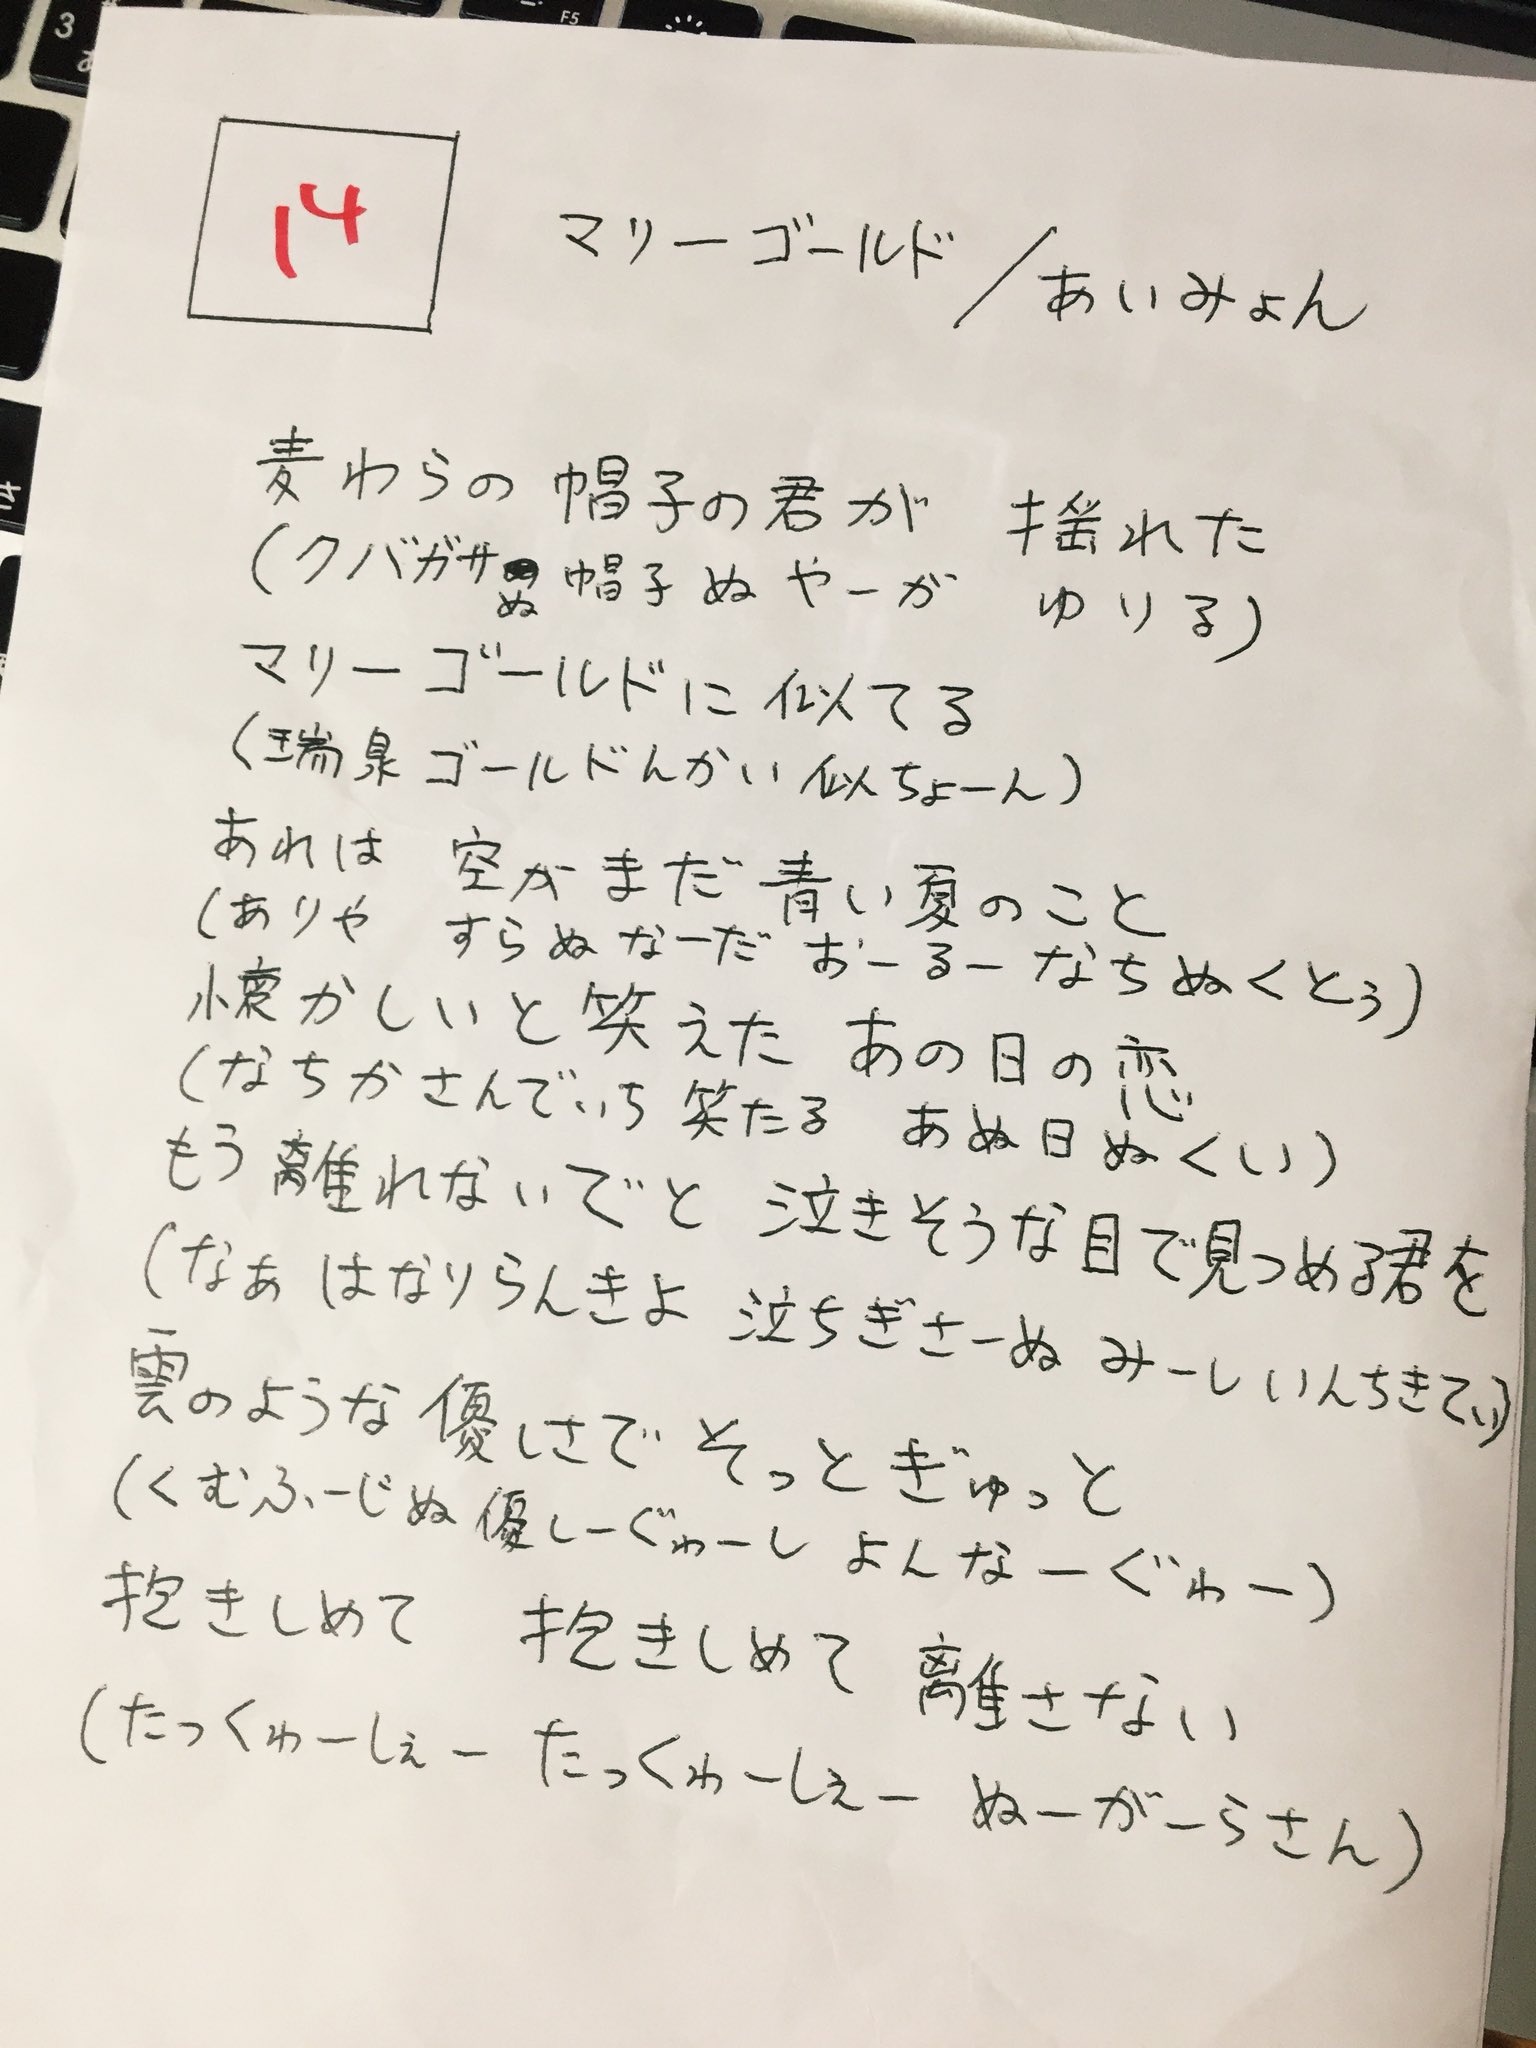 3
あ
F5
14
マリーゴールド/あいみょん
麦わらの 帽子の君が 揺れた
(クバガサぬ 帽子ぬ やーが ゆりる)
マリーゴールドに似てる
(瑞泉ゴールドんかい似ちょーん)
あれは 空がまだ青い夏のこと
(ありや すらぬなーだ おーるーなちぬくとぅ)
懐かしいと笑えた あの日の恋
(なちかさんでぃち 笑たる あぬ日ぬくい)
もう離れないでと 泣きそうな目で見つめる君を
(なぁ はなりらんきよ 泣ちぎさーぬ みーしいんちきてぃ)
雲のような優しさで そっとぎゅっと
(くむふーじぬ優しーぐゎーし よんなーぐゎー)
抱きしめて 抱きしめて 離さない
(たっくゎーしぇー たっくゎーしぇー ぬーがーらさん)